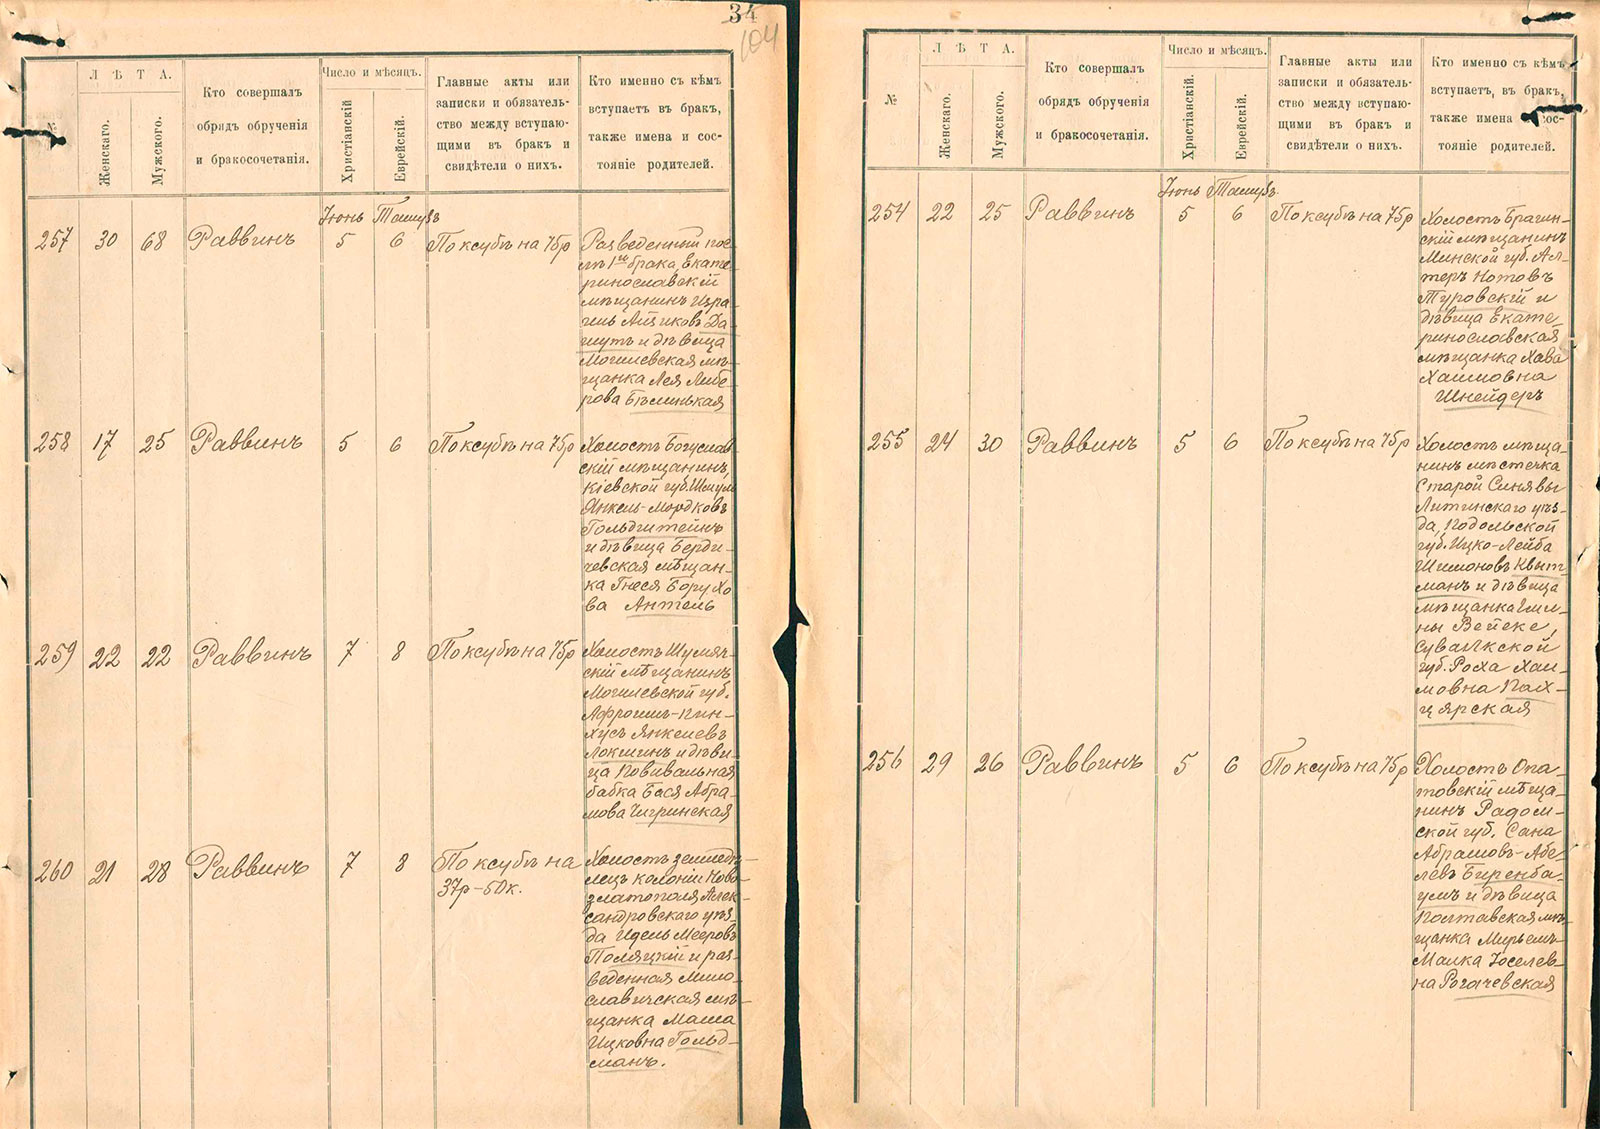 34
104
№
ЛѢТА.
Женскаго.
Мужского.
Кто совершалъ
обрядъ обрученія
и бракосочетанія.
Число и мѣсяцъ.
Христіанскій
Еврейскій.
Главные акты или
записки и обязатель-
ство между вступаю-
щими въ бракъ и
свидѣтели о нихъ.
Кто именно съ кѣмъ
вступаетъ въ бракъ,
также имена и сос-
тояніе родителей.
Іюнь Тамузъ
257 30 68 Раввинъ 5 6 По ксубѣ на 75р
Разведенный пос-
лѣ 1го брака, Екате-
ринославскій
мѣщанинъ Изра-
иль Ациковъ Да-
шутъ и дѣвица
Могилевская мѣ-
щанка Лея Либе-
рова Бѣлинькая
258 17 25 Раввинъ 5 6 По ксубѣ на 75р
Холостъ Богуслав
скій мѣщанинъ,
Кіевской губ. Шмуль
Янкель-Мордковъ
Гольдштейнъ
и дѣвица Берди-
чевская мѣщан-
ка Гнеся Борухо
ва Антель
259 22 22 Раввинъ 7 8 По ксубѣ на 75р
Холостъ Шумяч-
скій мѣщанинъ
Могилевской губ.
Афроимъ-Пин-
хусъ Янкелевъ
Локшинъ и дѣви-
ца Повивальная
бабка Бася Абра-
мова Чигринская
260 21 28 Раввинъ 7 8 По ксубѣ на
37р-50к.
Холостъ земледѣ-
лецъ колоніи Ново-
златополя Алек-
сандровскаго уѣз-
да Идель Мееровъ
Поляцкій и раз-
веденная Мило-
славичская мѣ-
щанка Маша
Ицковна Гольд-
манъ.
№
ЛѢТА.
Женскаго.
Мужского.
Кто совершалъ
обрядъ обрученія
и бракосочетанія.
Число и мѣсяцъ.
Христіанскій.
Еврейскій.
Главные акты или
записки и обязатель-
ство между вступаю-
щими въ бракъ и
свидѣтели о нихъ.
Кто именно съ кѣмъ
вступаетъ, въ бракъ,
также имена и сос-
тояніе родителей.
Іюнь Тамузъ
254 22 25 Раввинъ 5 6 По ксубѣ на 75р
Холостъ Брагин-
скій мѣщанинъ
Минской губ. Ал-
теръ Нотовъ
Туровскій и
дѣвица Екате
ринославская
мѣщанка Хава
Хаимовна
Шнейдеръ
255 24 30 Раввинъ 5 6 По ксубѣ на 75р
Холостъ мѣща-
нинъ мѣстечка
Старой Синявы
Литинскаго уѣз-
да, Подольской
губ. Ицко-Лейба
Шимоновъ Квыт
манъ и дѣвица
мѣщанка Гми-
ны Вейске,
Сувалкской
губ. Роха Хаи-
мовна Пах-
цярская
256 29 26 Раввинъ 5 6 По ксубѣ на 75р
Холостъ Опа-
товскій мѣща-
нинъ Радом-
ской губ. Сана
Абрамовъ-Абе-
левъ Биренба-
умъ и дѣвица
Полтавская мѣ-
щанка Мирьемъ
Малка Іоселев-
на Рогачевская